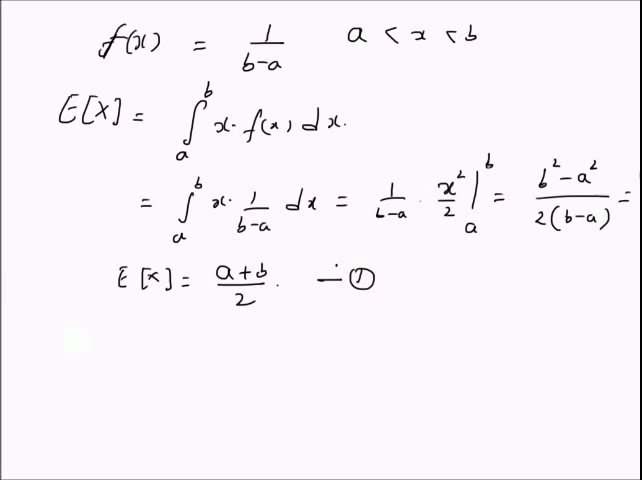 f(x) = 1/(b-a) a < x < b
E[X] = ∫_a^b x· f(x) dx.
= ∫_a^b x· 1/(b-a) dx = 1/(b-a) · x²/2 |_a^b = (b² - a²)/(2(b-a)) =
E[x] = (a+b)/2 . — ①